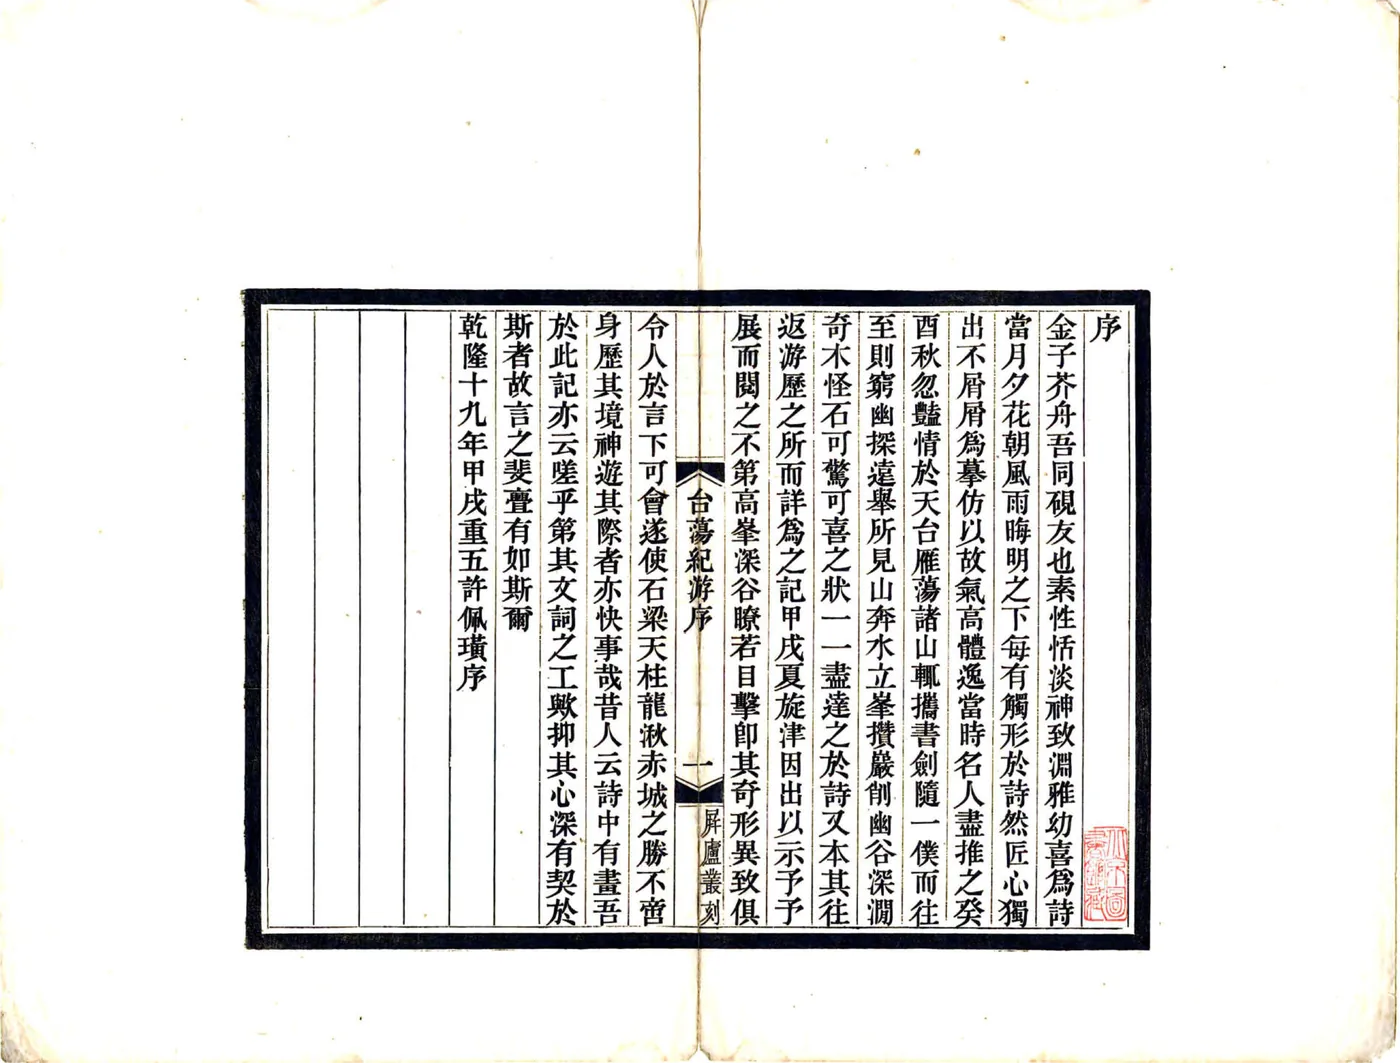 序
金子芥舟吾同硯友也素性恬淡神致淵雅幼喜爲詩
當月夕花朝風雨晦明之下每有觸形於詩然匠心獨
出不屑屑爲摹仿以故氣高體逸當時名人盡推之癸
酉秋忽豔情於天台雁蕩諸山輒攜書劍隨一僕而往
至則窮幽探遠舉所見山奔水立峯攢巖削幽谷深澗
奇木怪石可驚可喜之狀一一盡達之於詩又本其往
返游歷之所而詳爲之記甲戌夏旋津因出以示予予
展而閱之不第高峯深谷瞭若目擊卽其奇形異致俱
台蕩紀游序
一
屛廬叢刻
令人於言下可會遂使石梁天柱龍湫赤城之勝不啻
身歷其境神遊其際者亦快事哉昔人云詩中有畫吾
於此記亦云嗟乎第其文詞之工歟抑其心深有契於
斯者故言之斐亹有如斯爾
乾隆十九年甲戌重五許佩璜序